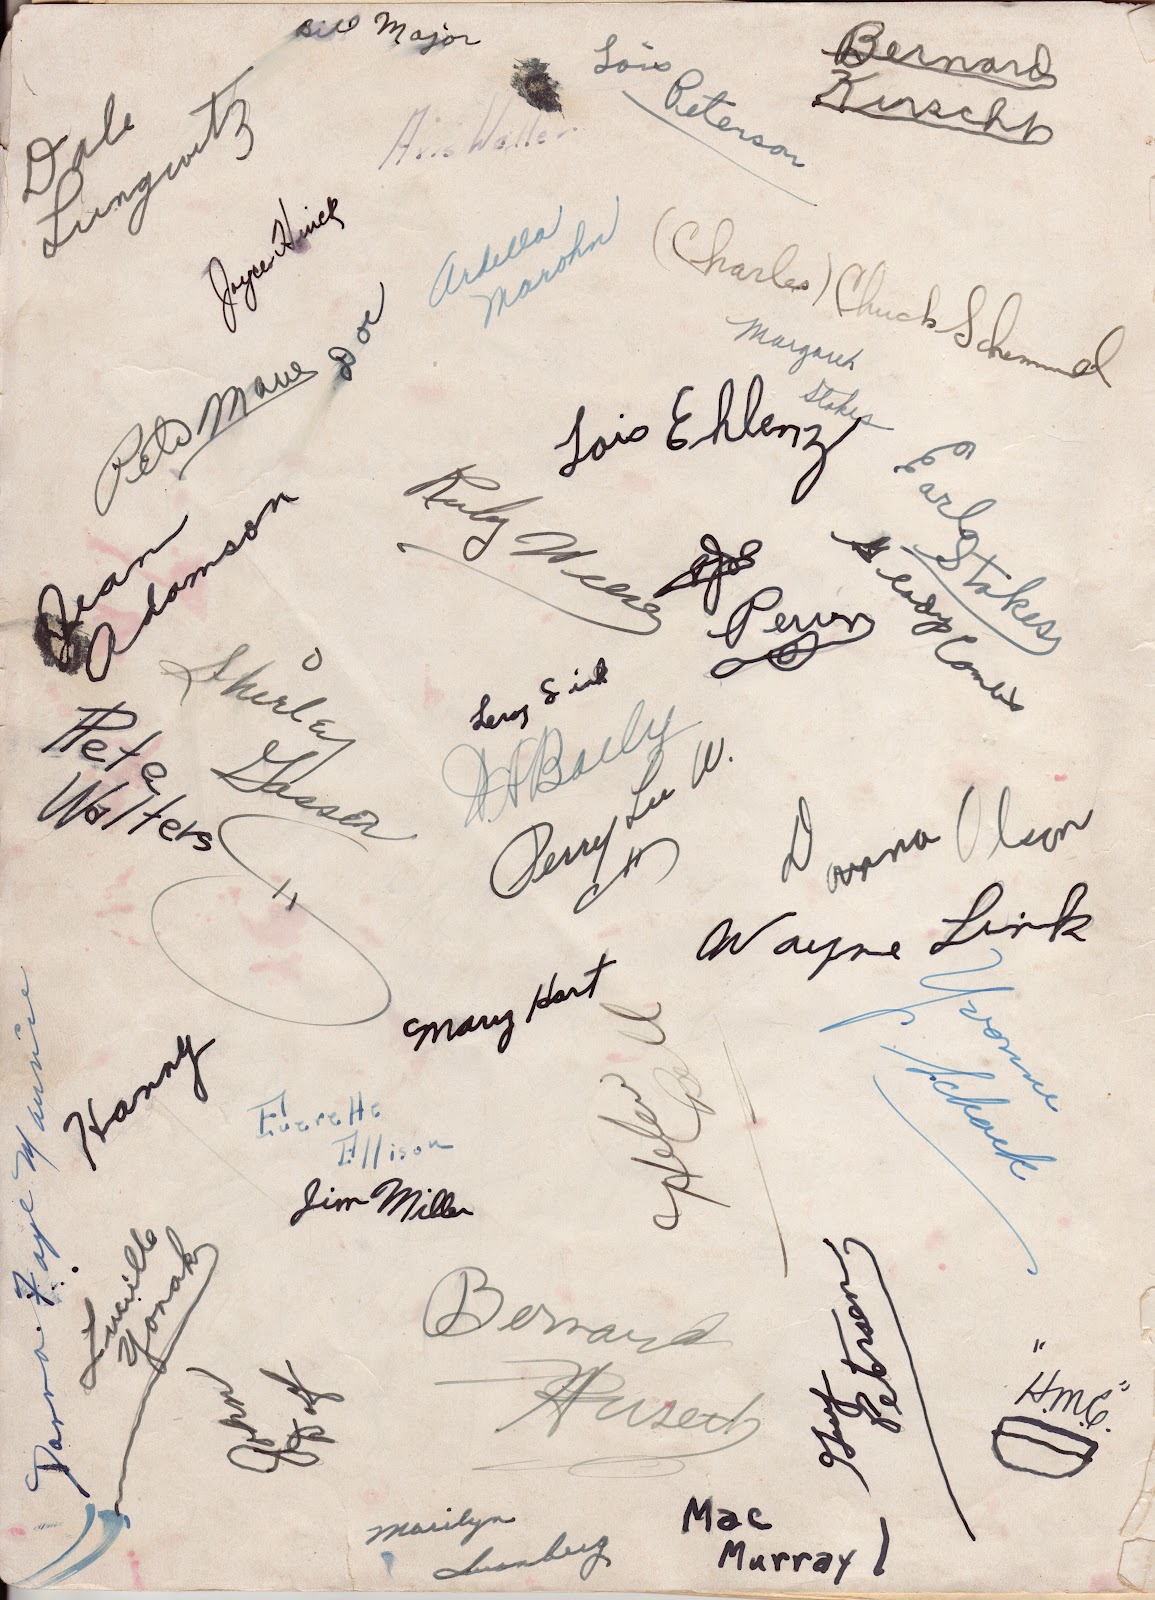 Bill Major
Lois
Peterson
Bernard
Kirscht
Dale
Lungwitz
Avis Weller
Joyce Hinck
Ardella
Marohn
(Charles) Chuck Schemmel
Margaret
Stokes
Pete Marie Doe
Lois Ehlenz
Earl
Stokes
Ruby
Jean
Adamson
Joe
Perron
Shirley
Gasser
Leroy Sink
Pete
Walters
Perry Lee W.
Donna Olson
Wayne Link
Mary Hart
Yvonne
Harry
Everette
Ellison
Jim Miller
Helen
Donna Faye Maurice
Lucille
Yonak
Bernard
Husech
Peterson
John
"H.M.C."
Marilyn
Mac
Murray